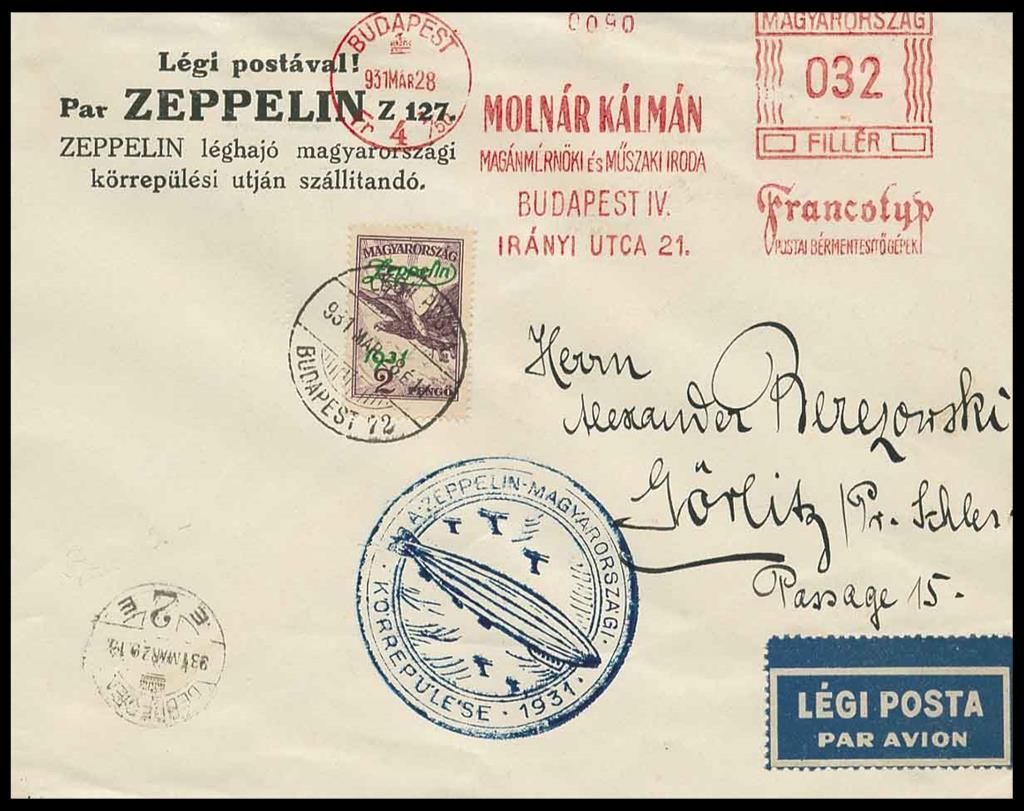 Légi postával!
Par ZEPPELIN Z 127.
ZEPPELIN léghajó magyarországi
körrepülési utján szállitandó.
BUDAPEST
931 MÁR 28
4
0090
MOLNÁR KÁLMÁN
MAGÁNMÉRNÖKI ÉS MŰSZAKI IRODA
BUDAPEST IV.
IRÁNYI UTCA 21.
MAGYARORSZÁG
032
FILLÉR
Francotyp
POSTAI BÉRMENTESITŐ GÉPEK
MAGYARORSZÁG
Zeppelin
1931
2 PENGŐ
931 MAR
BUDAPEST 72
Herrn
Alexander Berezowski
Görlitz / Pr. Schles
Passage 15.
A ZEPPELIN-MAGYARORSZÁGI
KÖRREPÜLÉSE · 1931 ·
2
931 MAR 29
LÉGI POSTA
PAR AVION